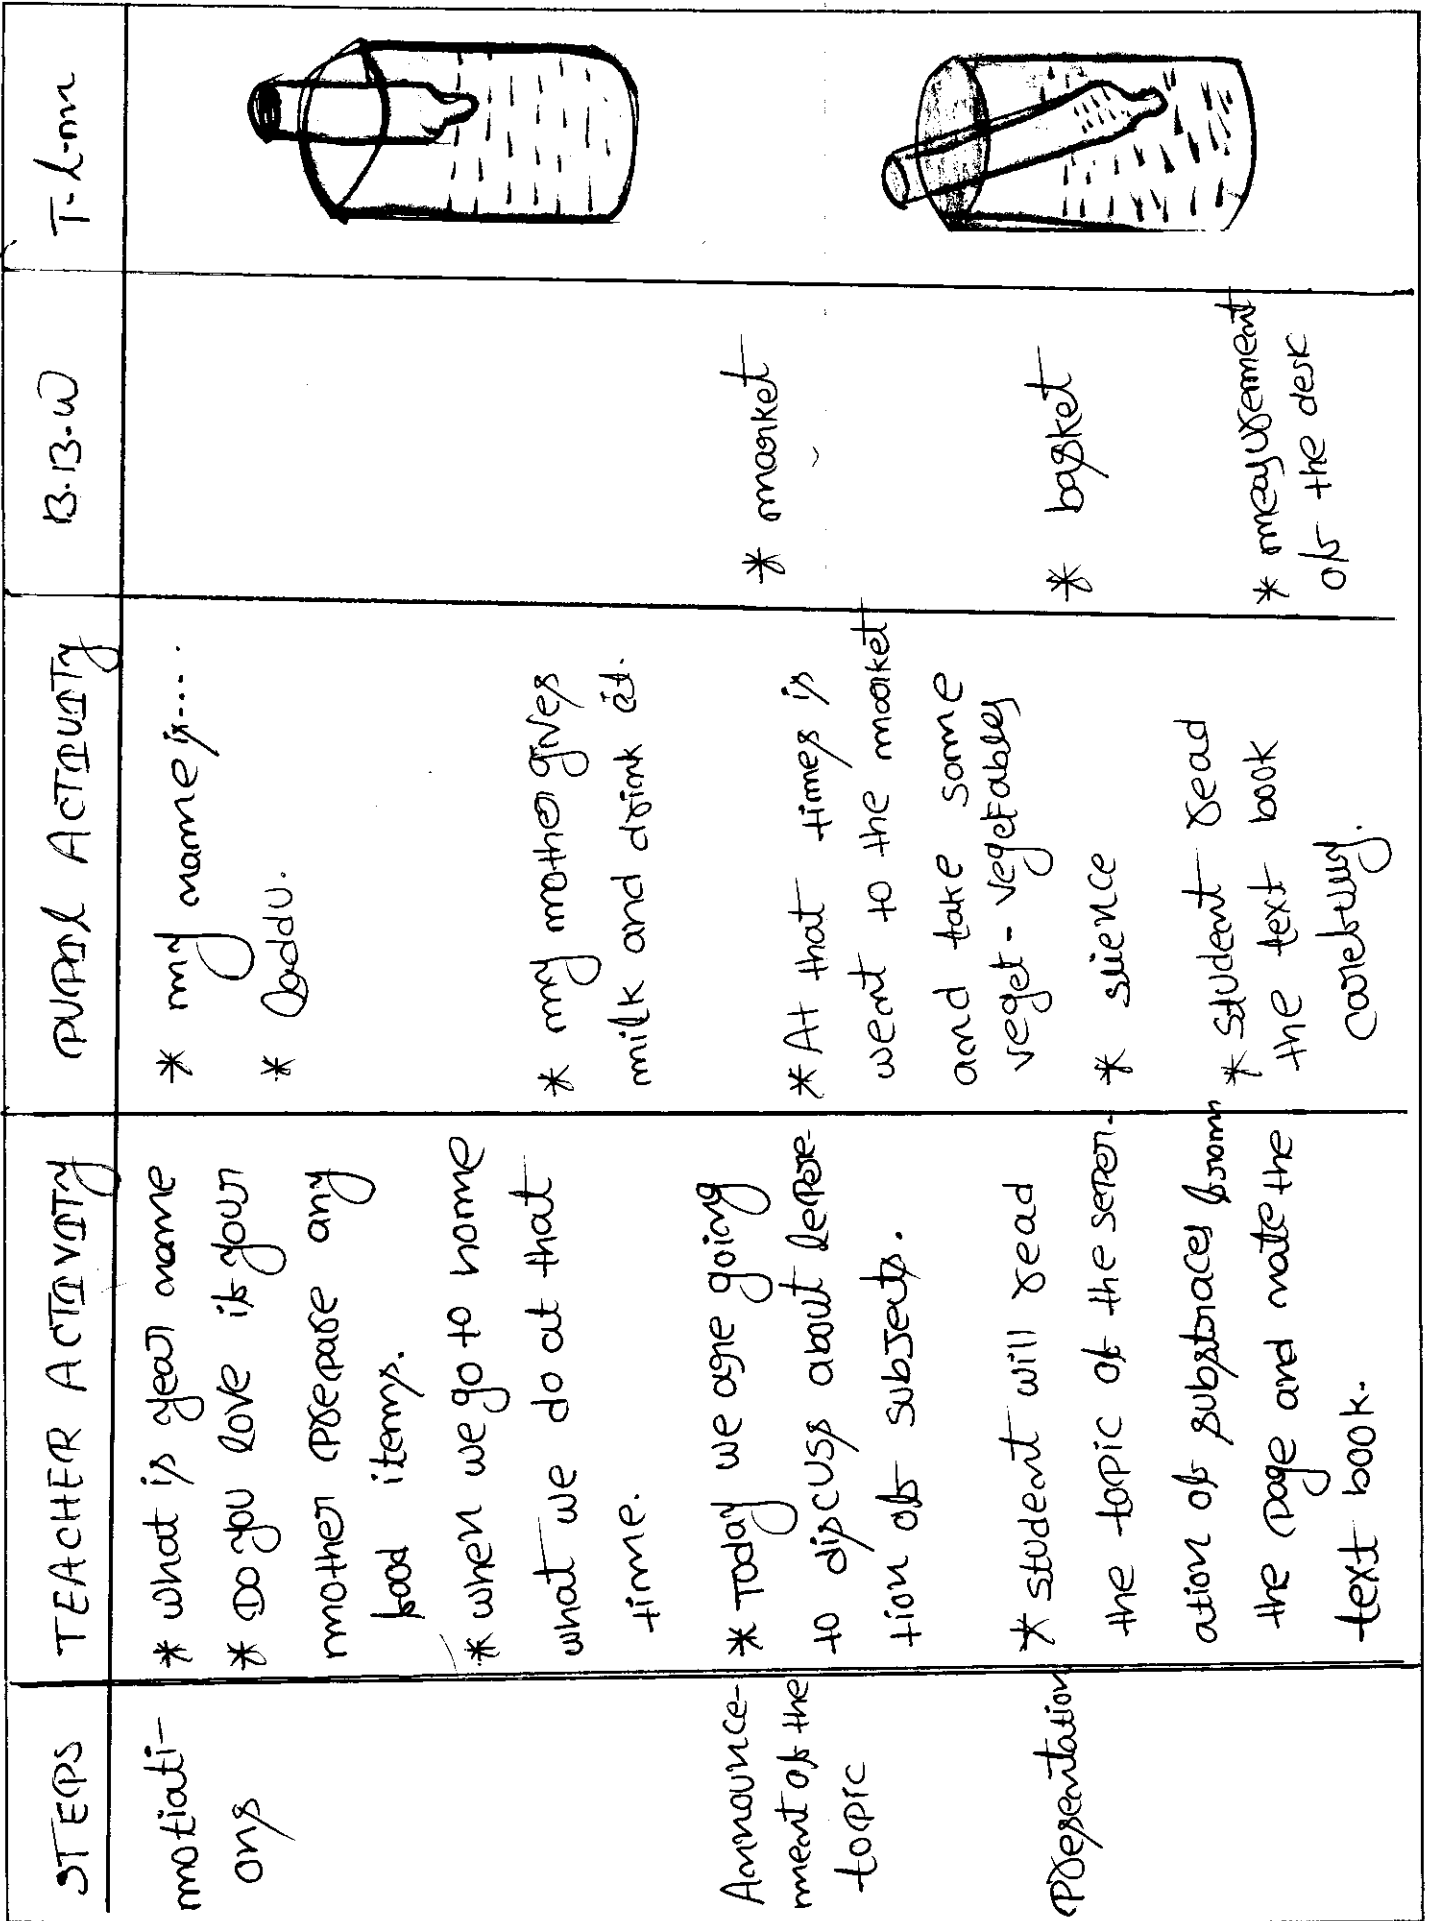 STEPS
TEACHER ACTIVITY
PUPIL ACTIVITY
B.B.W
T-l-m
motiati-
ons
* what is year name
* Do you love it your
mother prepare any
food items.
* when we go to home
what we do at that
time.
* my name is....
* Laddu.
* my mother gives
milk and drink it.
Announce-
ment of the
topic
* Today we are going
to discuss about depere-
tion of subjects.
* At that times is
went to the market
and take some
veget- vegetables
* market
* basket
Presentation
* student will read
the topic of the seper-
ation of substnaces from
the page and mate the
text book.
* slience
* student read
the text book
carefully.
* measurement
of the desk